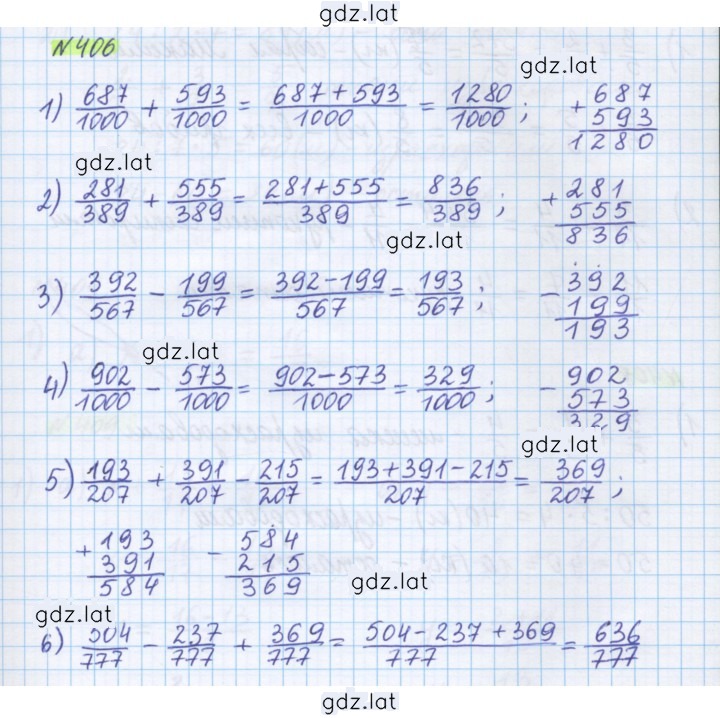 gdz.lat
N 406
gdz.lat
1) 687/1000 + 593/1000 = 687+593/1000 = 1280/1000 ; + 687
593
1280
gdz.lat
2) 281/389 + 555/389 = 281+555/389 = 836/389 ; + 281
555
836
gdz.lat
3) 392/567 - 199/567 = 392-199/567 = 193/567 ; - 392
199
193
gdz.lat
4) 902/1000 - 573/1000 = 902-573/1000 = 329/1000 ; - 902
573
329
gdz.lat
5) 193/207 + 391/207 - 215/207 = 193+391-215/207 = 369/207 ;
+ 193
391
584
- 584
215
369
gdz.lat
gdz.lat
6) 504/777 - 237/777 + 369/777 = 504-237+369/777 = 636/777
gdz.lat